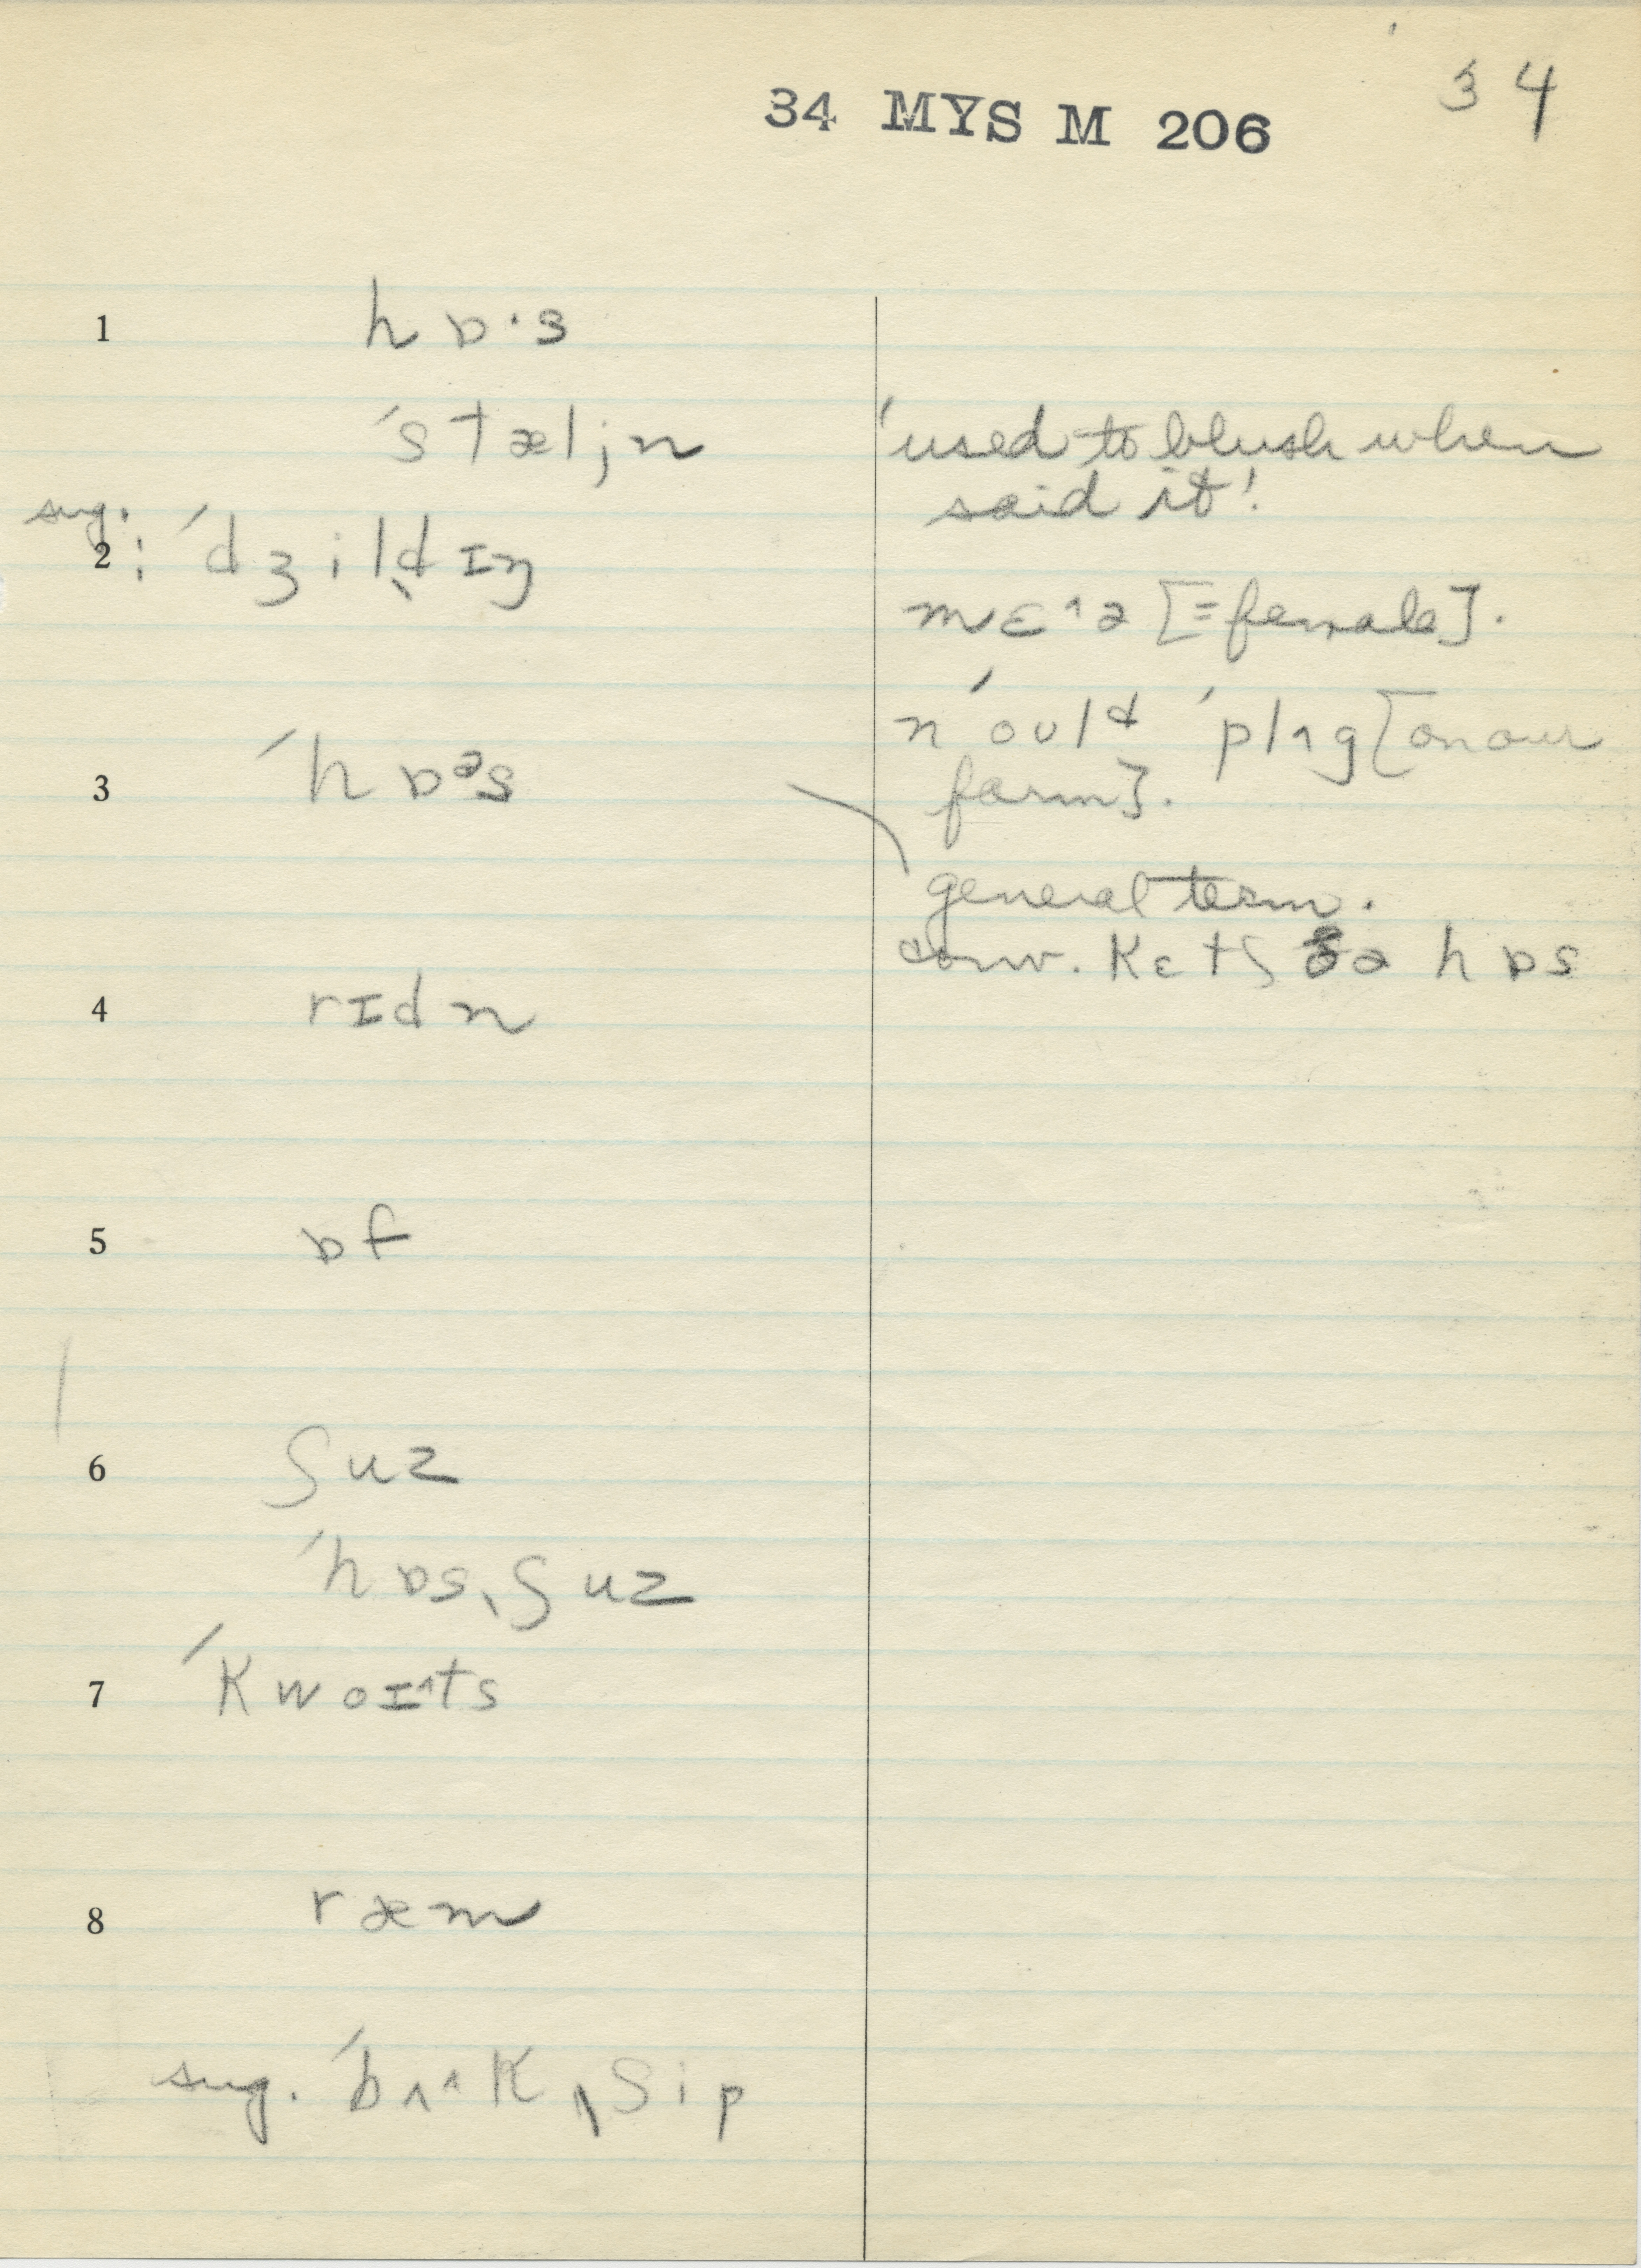 34
34 MYS M 206
1 hɒ·s
ˈstæljn
sug.
2 : ˈdʒilˌdɪŋ
3 ˈhɒᵊs
4 rɪdn
5 ɒf
6 ʃuz
ˈhɒsˌʃuz
7 ˈkwoɪ^ts
8 ræm
sug. ˈbʌ^kˌʃip
'used to blush when
said it!
mɛ^ə [=female].
n ˈoulᵈ ˈplʌg [on our
farm].
general term.
conv. kɛtʃ ðə hɒs